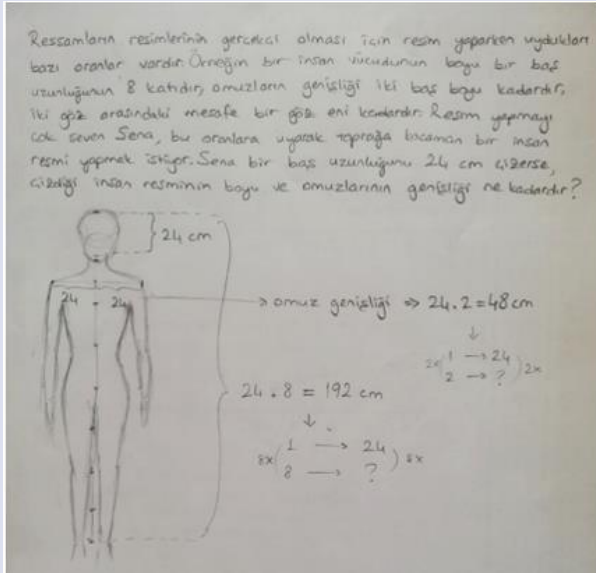 Ressamların resimlerinin gerçekçi olması için resim yaparken uydukları
bazı oranlar vardır. Örneğin bir insan vücudunun boyu bir baş
uzunluğunun 8 katıdır, omuzların genişliği iki baş boyu kadardır,
iki göz arasındaki mesafe bir göz eni kadardır. Resim yapmayı
çok seven Sena, bu oranlara uyarak toprağa kocaman bir insan
resmi yapmak istiyor. Sena bir baş uzunluğunu 24 cm çizerse,
çizdiği insan resminin boyu ve omuzlarının genişliği ne kadardır?
24 cm
24 24
→ omuz genişliği ⇒ 24.2=48cm
↓
2x( 1 → 24
2 → ? )2x
24.8 = 192 cm
↓
8x( 1 → 24
8 → ? ) 8x